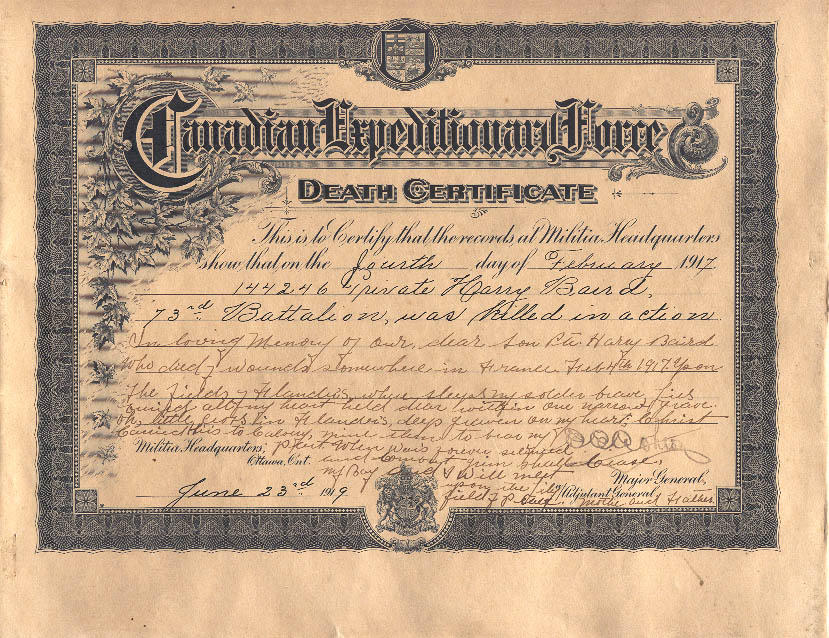 Canadian Expeditionary Force
DEATH CERTIFICATE
This is to Certify that the records at Militia Headquarters
show that on the fourth day of February 1917
144246 Private Harry Baird,
73rd Battalion, was Killed in action
In loving Memory of our dear Son Pte Harry Baird
who died of wounds somewhere in France Feb 4th 1917 upon
The fields of Flanders, where sleeps my soldier brave lies
all my heart held dear within one narrow grave
Oh little Cross in Flanders, deep graven on my heart, Christ
Came His to Calvary mine then to bear my
Militia Headquarters, part When wars forever
Ottawa, Ont. and
my Boy I will meet
Major General,
Adjutant General, Mother and Father
field of
June 23rd 1919